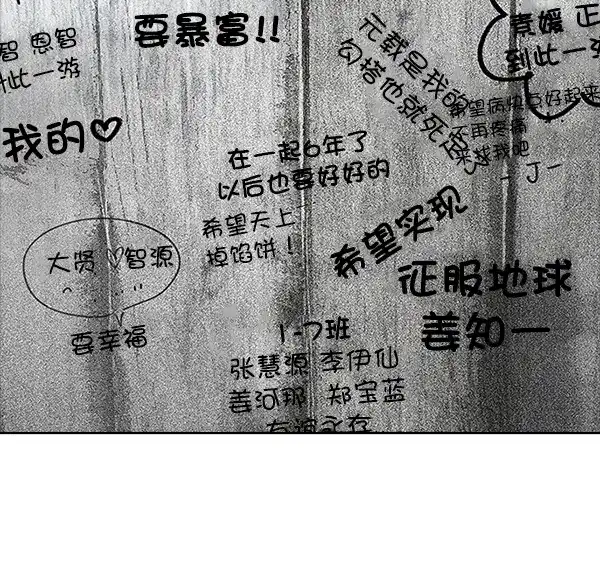 要暴富!!
智 恩智
到此一游
我的♡
元载是我的
勾搭他就死定了
袁媛 正
到此一游
希望病快点好起来
不再疼痛
来球我吧
- J -
在一起6年了
以后也要好好的
希望天上
掉馅饼！
希望实现
大贤♡智源
要幸福
征服地球
善知一
1-7班
张慧源 李伊仙
姜河那 郑宝蓝
友谊永存